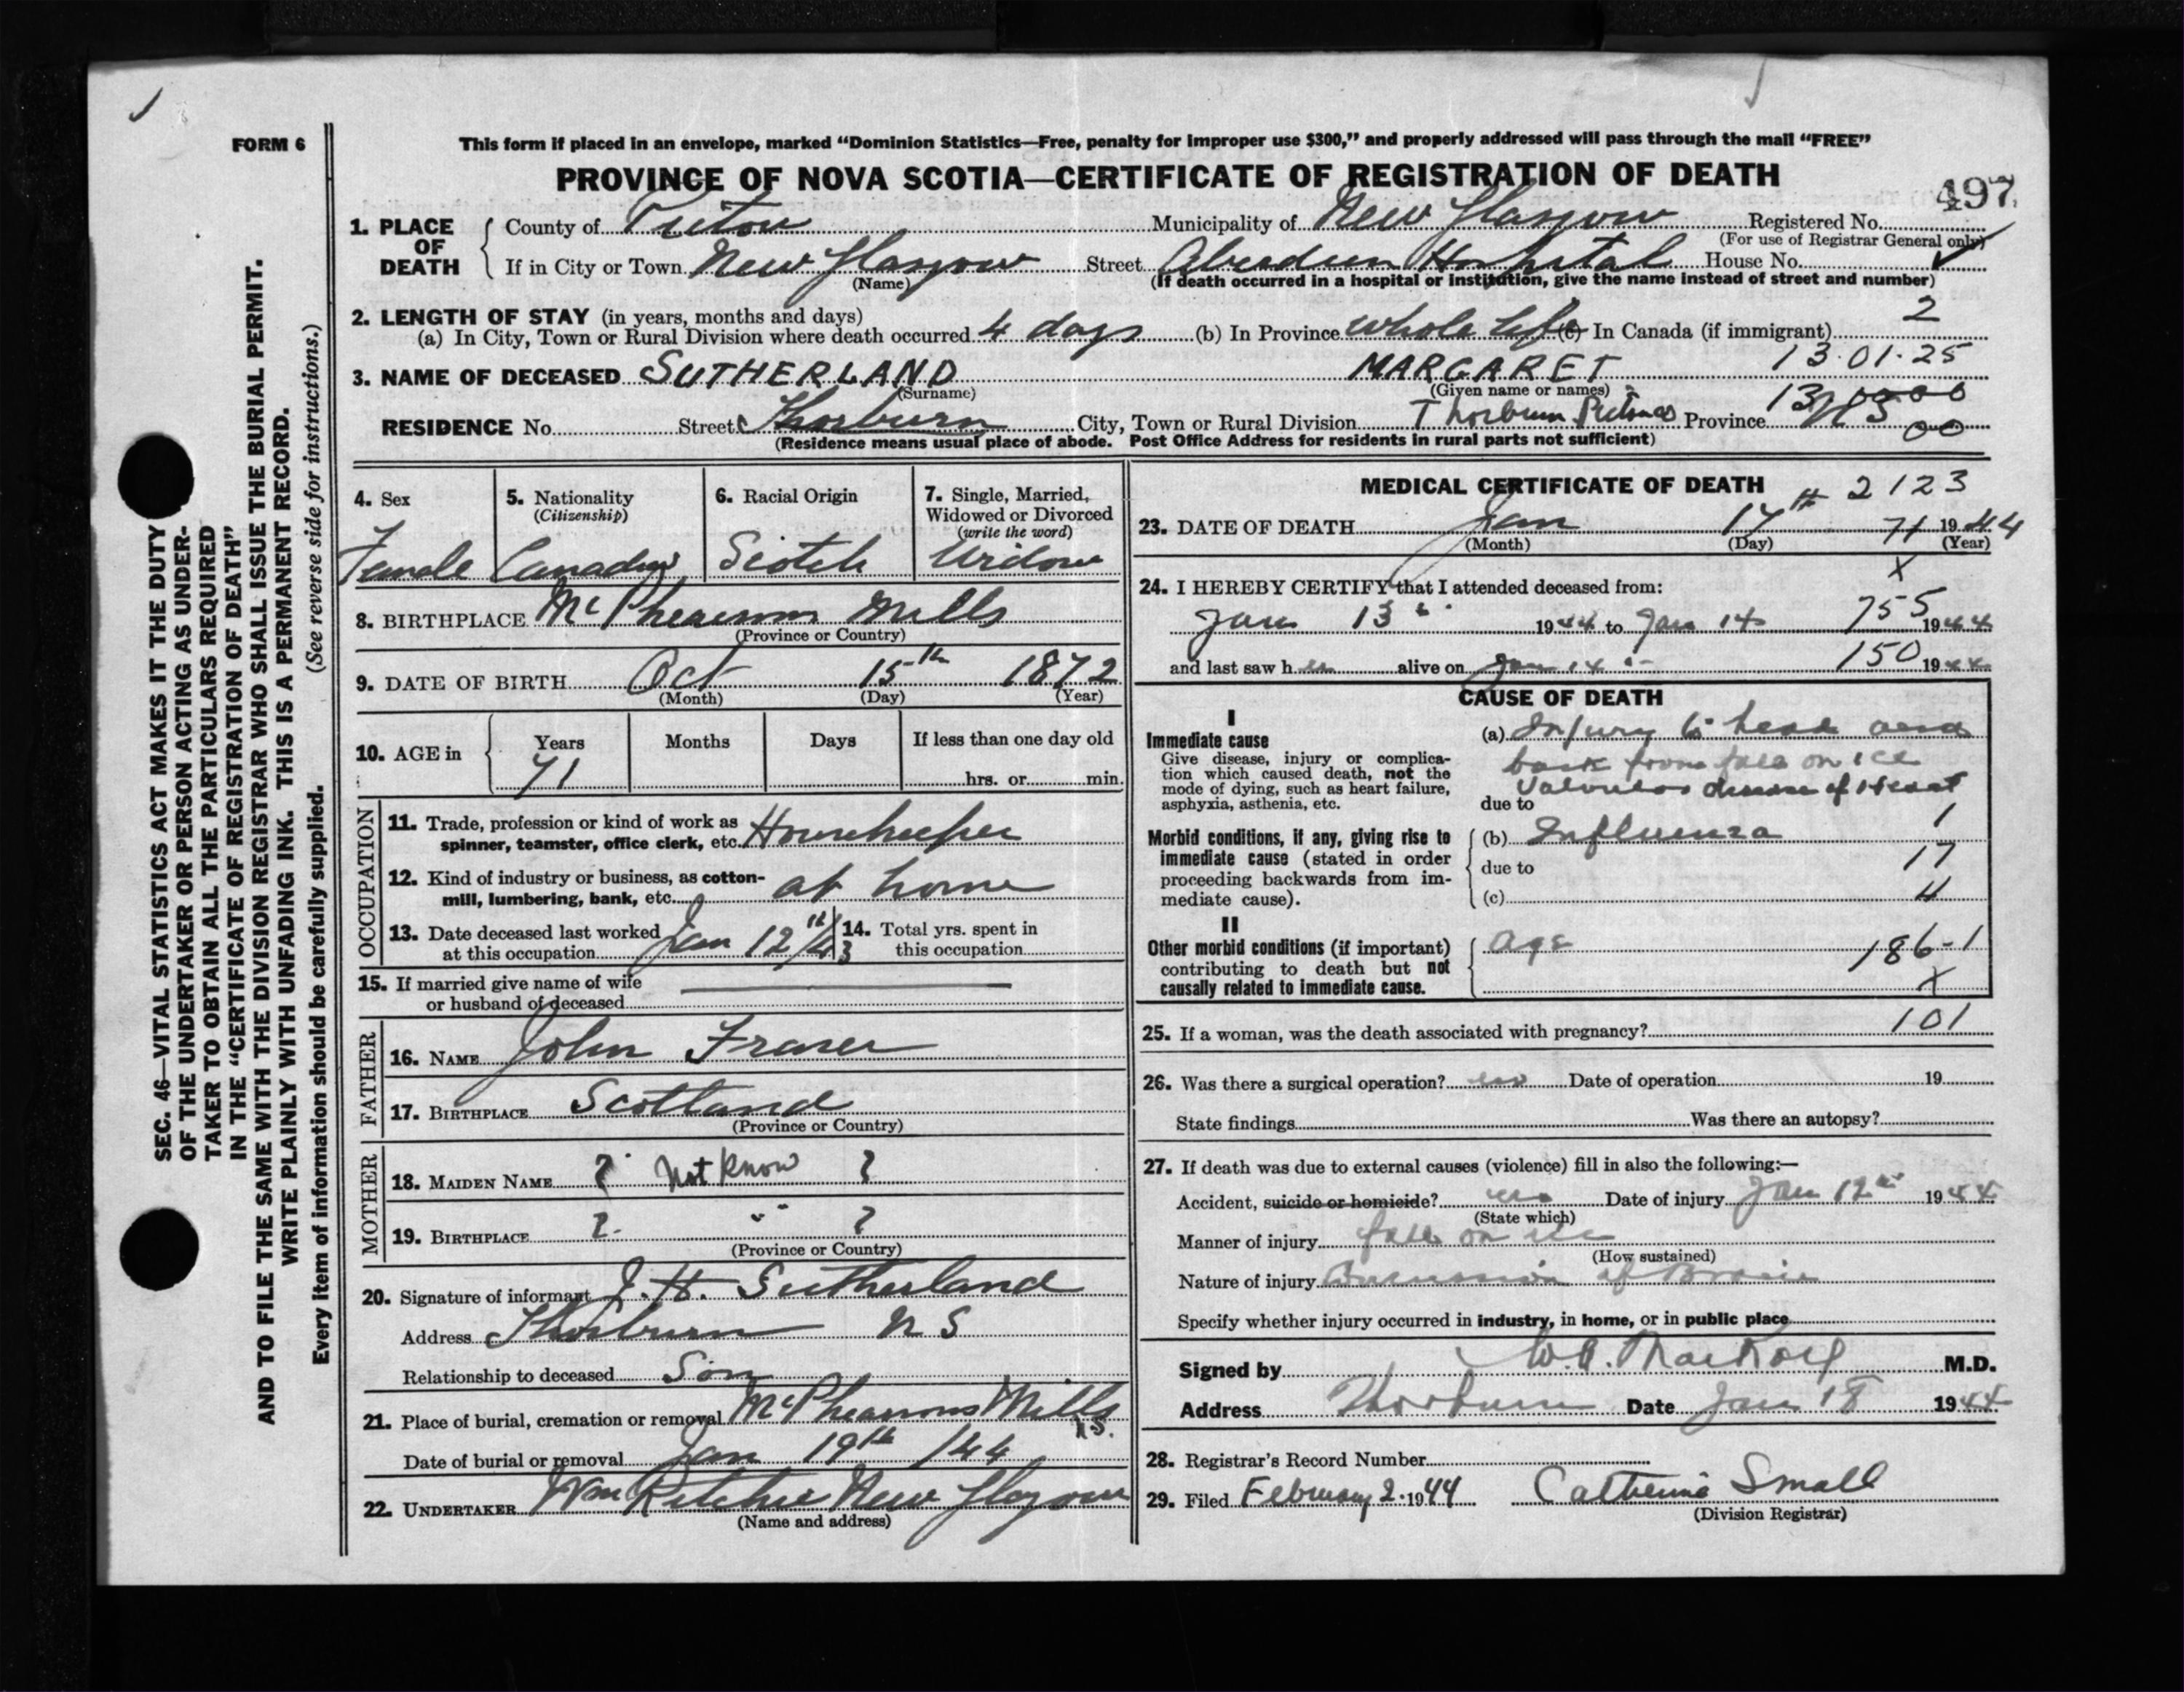 FORM 6
This form if placed in an envelope, marked “Dominion Statistics—Free, penalty for improper use $300,” and properly addressed will pass through the mail “FREE”
PROVINCE OF NOVA SCOTIA—CERTIFICATE OF REGISTRATION OF DEATH
497
1. PLACE OF DEATH
County of Pictou Municipality of New Glasgow Registered No.
(For use of Registrar General only)
If in City or Town New Glasgow Street Aberdeen Hospital House No.
(Name) (If death occurred in a hospital or institution, give the name instead of street and number)
2. LENGTH OF STAY (in years, months and days) 2
(a) In City, Town or Rural Division where death occurred 4 days (b) In Province whole life (c) In Canada (if immigrant)
3. NAME OF DECEASED SUTHERLAND MARGARET 13.01.25
(Surname) (Given name or names)
RESIDENCE No. Street Thorburn City, Town or Rural Division Thorburn Pictou Co Province N S
(Residence means usual place of abode. Post Office Address for residents in rural parts not sufficient)
4. Sex
Female
5. Nationality
(Citizenship)
Canadian
6. Racial Origin
Scotch
7. Single, Married, Widowed or Divorced
(write the word)
Widow
8. BIRTHPLACE McPhersons Mills
(Province or Country)
9. DATE OF BIRTH Oct 15th 1872
(Month) (Day) (Year)
10. AGE in Years Months Days If less than one day old
71 hrs. or min.
OCCUPATION
11. Trade, profession or kind of work as
spinner, teamster, office clerk, etc. Housekeeper
12. Kind of industry or business, as cotton-
mill, lumbering, bank, etc. at home
13. Date deceased last worked
at this occupation Jan 12th/43
14. Total yrs. spent in
this occupation
15. If married give name of wife
or husband of deceased
FATHER
16. NAME John Fraser
17. BIRTHPLACE Scotland
(Province or Country)
MOTHER
18. MAIDEN NAME ? Not Know ?
19. BIRTHPLACE ? " " ?
(Province or Country)
20. Signature of informant J. H. Sutherland
Address Thorburn N S
Relationship to deceased Son
21. Place of burial, cremation or removal McPhersons Mills N.S.
Date of burial or removal Jan 19th /44
22. UNDERTAKER Wm Ritchie New Glasgow
(Name and address)
MEDICAL CERTIFICATE OF DEATH # 2123
23. DATE OF DEATH Jan 17th 71 1944
(Month) (Day) (Year)
X
24. I HEREBY CERTIFY that I attended deceased from:
Jan 13 1944 to Jan 14 755 1944
and last saw her alive on Jan 14 150 1944
CAUSE OF DEATH
I
Immediate cause
Give disease, injury or complica-
tion which caused death, not the
mode of dying, such as heart failure,
asphyxia, asthenia, etc.
(a) Injury to head and
back from fall on ice
Valvular disease of Heart
due to
1
Morbid conditions, if any, giving rise to
immediate cause (stated in order
proceeding backwards from im-
mediate cause).
(b) Influenza
due to 17
(c) 4
II
Other morbid conditions (if important)
contributing to death but not
causally related to immediate cause.
age
186-1
X
25. If a woman, was the death associated with pregnancy? 101
26. Was there a surgical operation? no Date of operation 19
State findings Was there an autopsy?
27. If death was due to external causes (violence) fill in also the following:—
Accident, suicide or homicide? yes Date of injury Jan 12th 1944
(State which)
Manner of injury fall on ice
(How sustained)
Nature of injury Concussion of Brain
Specify whether injury occurred in industry, in home, or in public place
Signed by M.D.
Address Thorburn Date Jan 18 1944
28. Registrar's Record Number
29. Filed February 2. 1944 Catherine Small
(Division Registrar)
SEC. 46—VITAL STATISTICS ACT MAKES IT THE DUTY
OF THE UNDERTAKER OR PERSON ACTING AS UNDER-
TAKER TO OBTAIN ALL THE PARTICULARS REQUIRED
IN THE “CERTIFICATE OF REGISTRATION OF DEATH”
AND TO FILE THE SAME WITH THE DIVISION REGISTRAR WHO SHALL ISSUE THE BURIAL PERMIT.
WRITE PLAINLY WITH UNFADING INK. THIS IS A PERMANENT RECORD.
Every item of information should be carefully supplied. (See reverse side for instructions.)